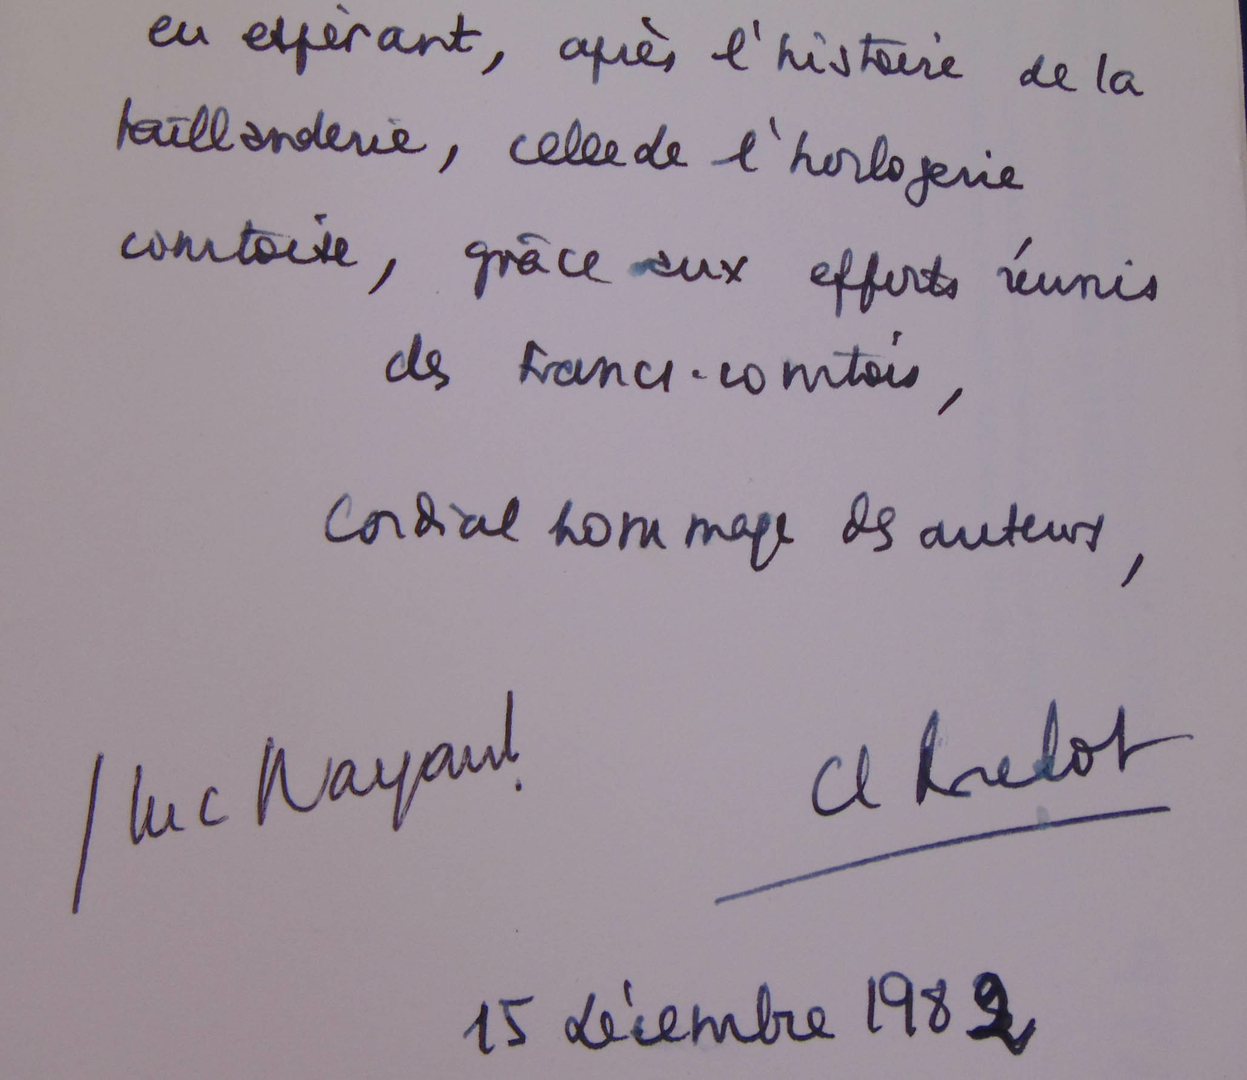 en espérant, après l'histoire de la
taillanderie, celle de l'horlogerie
comtoise, grâce aux efforts réunis
des Francs-comtois,
Cordial hommage des auteurs,
Luc
Cl
15 décembre 1982